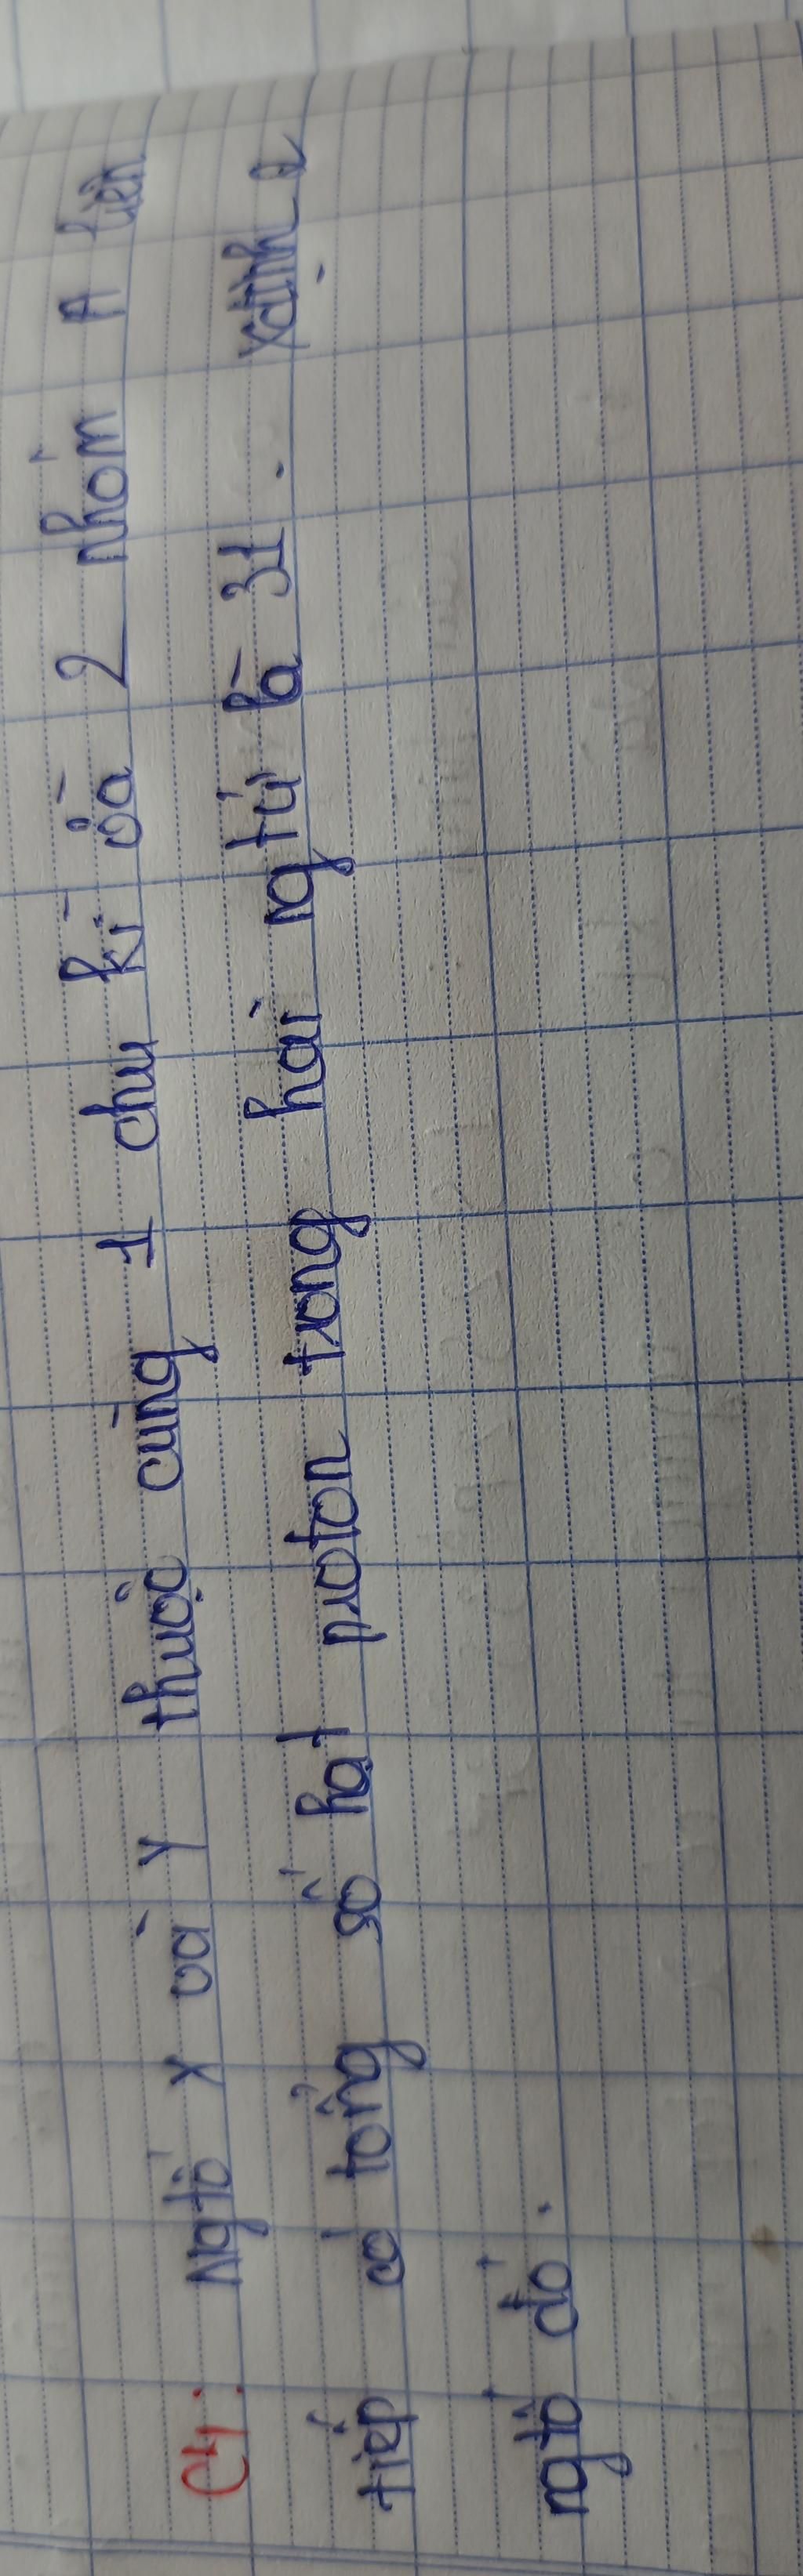 C4: Ngtố X và Y thuộc cùng 1 chu kì và 2 nhóm A liên
tiếp có tổng số hạt proton trong hai ngtử là 31. Xđịnh 2
ngtố đó.